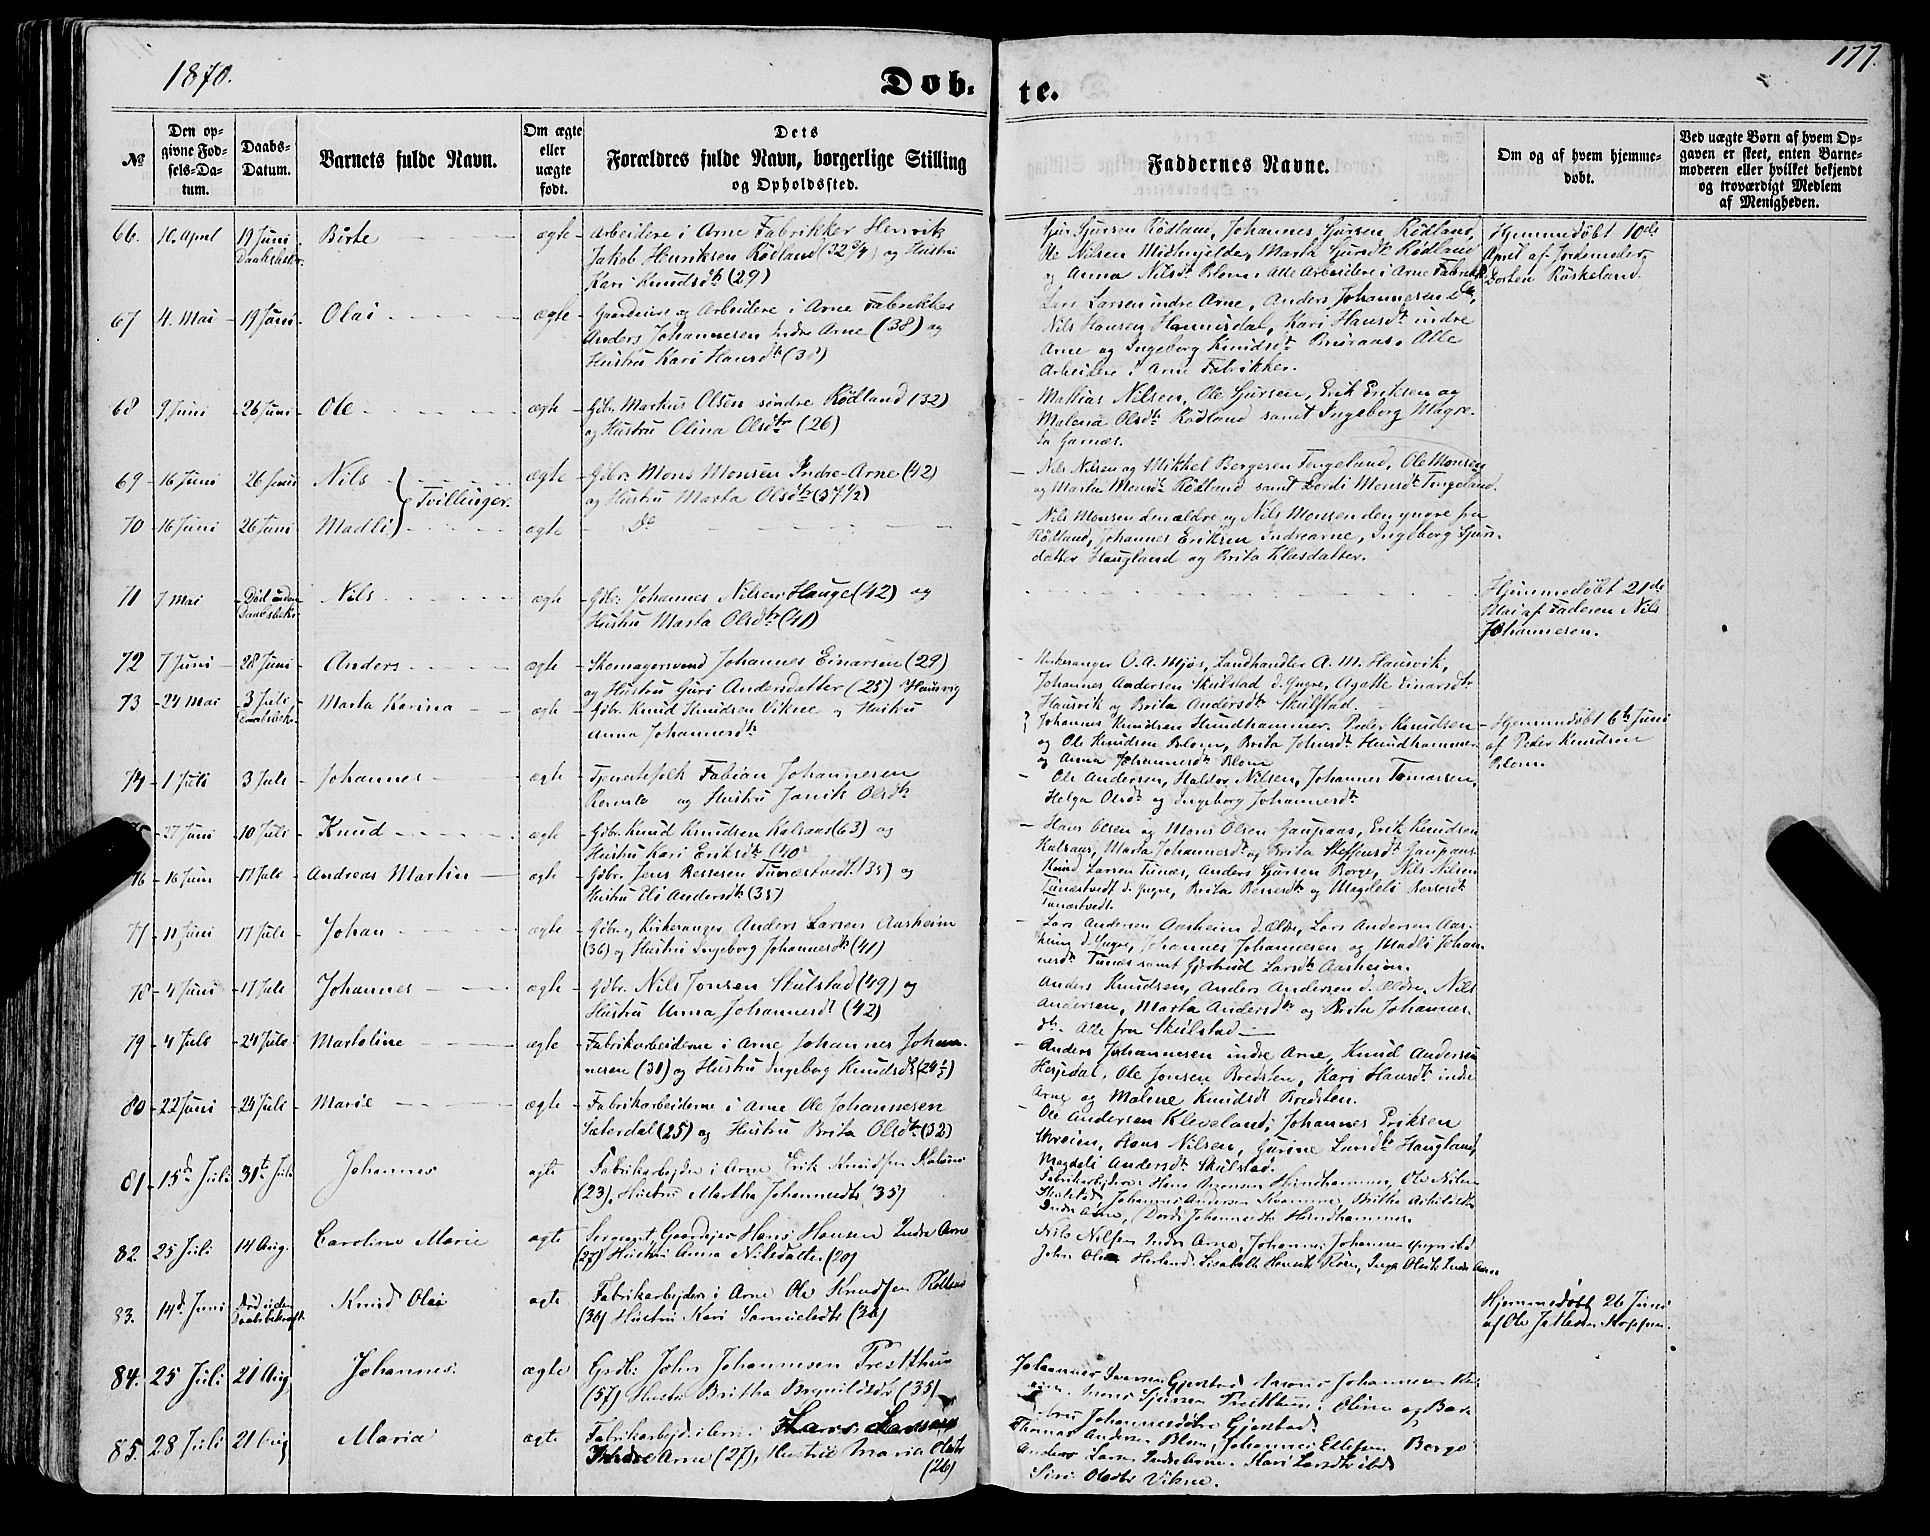 1870.
Dob-
te.
177.
№
Den op-
givne Fød-
sels-Da-
tum.
Daabs-
Datum.
Barnets fulde Navn.
Om ægte
eller
uægte
født.
Dets
Forældres fulde Navn, borgerlige Stilling
og Opholdssted.
Faddernes Navne.
Om og af hvem hjemme-
døbt.
Ved uægte Børn af hvem Op-
gaven er skeet, enten Barne-
moderen eller hvilket bekjendt
og troværdigt Medlem
af Menigheden.
66. 10. April 19 Juni Birte ægte Arbeidere i Arne Fabrikker Henrik
Jakob Henriksen Rødland (32 3/4) og Hustru
Kari Knudsdt (29)
Gjur Gjursen Rødland, Johannes Gjursen Rødland,
Ole Nilsen Midtmjelde, Marta Gjursdt Rødland
og Anna Nilsdt Blom. Alle Arbeidere i Arne Fabrik
Hjemmedøbt 10de
April af Jordemoder
Dorten Røskeland.
67 4. Mai 19 Juni Olai ægte Gaardmand og Arbeidere i Arne Fabrikker
Anders Johannesen Indre Arne (38) og
Hustru Kari Hansdt
Lars Larsen indre Arne, Anders Johannesen do,
Nils Hansen Hannisdal, Kari Hansdt indre
Arne og Ingeborg Knudsdt Buraas. Alle
Arbeidere i Arne Fabrikker.
68 9 Juni 26 Juni Ole ægte Gdbr. Markus Olsen søndre Rødland (32)
og Hustru Olina Olsdtr (26)
Mathias Nilsen, Ole Gjursen, Erik Eriksen og
Malena Olsdt Rødland samt Ingeborg Magre-
ta Garnæs.
69 16 Juni 26 Juni Nils Tvillinger. ægte Gdbr. Mons Monsen Indre-Arne (42)
og Hustru Marta Olsdt (37 1/2)
Nils Nilsen og Mikkel Bergesen Tengeland, Ole Monsen
og Marta Monsdt Rødland samt Dordi Monsdt Tengeland.
70 16 Juni 26 Juni Madli ægte Do
Nils Monsen den ældre og Nils Monsen den yngre fra
Rødland, Johannes Eriksen Indrearne, Ingeborg Gjurs-
datter Haugland og Brita Klasdatter.
71 7 Mai Død uden
Daabsbekr. Nils ægte Gdbr. Johannes Nilsen Hauge (42) og
Hustru Marta Olsdt (41)
Hjemmedøbt 21de
Mai af Faderen Nils
Johannesen.
72 7 Juni 28 Juni Anders ægte Skomagersvend Johannes Einarsen (29)
og Hustru Guri Andersdatter (25) Hausvig
Kirkesanger O. A. Mjøs, Landhandler A. M. Hausvik,
Johannes Andersen Skulstad d. Yngre, Agathe Einarsdt
Hausvik og Brita Andersdt Skulstad.
73 24 Mai 3 Juli Marta Karina ægte Gdbr. Knud Knudsen Vikne og Hustru
Anna Johannesdt
Johannes Knudsen Hundhammer, Peder Knudsen
og Ole Knudsen Blom, Brita Johnsdt Hundhammer
og Anna Johannesdt Blom
Hjemmedøbt 6te Juni
af Peder Knudsen
Blom.
74 1 Juli 3 Juli Johannes ægte Tjenestefolk Fabian Johannesen
og Hustru Janik Olsdt
Ole Andersen, Haldor Nilsen, Johannes Tomassen,
Helga Olsdt og Ingeborg Johannesdt
27 Juni 10 Juli Knud ægte Gdbr. Knud Knudsen Kalsaas (63) og
Hustru Kari Eriksdt (40)
Hans Olsen og Mons Olsen Gaupaas, Erik Knudsen
Kalsaas, Marta Johannesdt og Brita Steffensdt Gaupaas
16 Juni 17 Juli Andreas Martin ægte Gdbr. Jens Bessesen Tunæstvedt (35) og
Hustru Eli Andersdt (35)
Knud Larsen Tunæs, Anders Gjursen Borge, Nils Nilsen
Tunæstvedt d. Yngre, Brita Bessesdt og Magdeli Bessesdt
Tunæstvedt.
77 11 Juni 17 Juli Johan ægte Gdbr. og Kirkesanger Anders Larsen Aarsheim
(36) og Hustru Ingeborg Johannesdt (41)
Lars Andersen Aasheim d. Ældre, Lars Andersen Aas-
heim d. Yngre, Johannes Johannesen og Madli Johan-
nesdt Tunæs samt Gjertrud Larsdt Aasheim.
78 4 Juni 17 Juli Johannes ægte Gdbr. Nils Jonsen Skulstad (49) og
Hustru Anna Johannesdt (42)
Anders Knudsen, Anders Andersen d. Ældre, Nils
Andersen, Marta Andersdt og Brita Johannes-
dt. Alle fra Skulstad
79 4 Juli 24 Juli Martoline ægte Fabrikarbeiderne i Arne Johannes Johan-
nesen (30) og Hustru Ingeborg Knudsdt (24 1/2)
Anders Johannesen indre Arne, Knud Andersen
Hespedal, Ole Jonsen Bredsten, Kari Hansdt indre
Arne og Malene Knudsdt Bredsten.
80 22 Juni 24 Juli Marie ægte Fabrikarbeiderne i Arne Ole Johannesen
Sæterdal (25) og Hustru Brita Olsdt (32)
Ole Andersen Kleveland, Johannes Eriksen
Skreien, Hans Nilsen, Gurine Larsdt Haugland,
Magdeli Andersdt Skulstad.
81. 15de Juli 31te Juli Johannes ægte Fabrikarbejder i Arne Erik Knudsen
(23), Hustru Martha Johannesdtr (35)
Fabrikarbejdere Hans Hundhammer, Ole Nilsen
Skulstad, Johannes Andersen Kvamme, Britha
Indre Arne, Dordi Johannesdtr Hundhammer.
82. 25 Juli 14 Aug. Caroline Marie ægte Sergeant Gaardejer Hans Hansen Indre Arne
(27) Hustru Anna Nilsdatter (20)
Nils Nilsen Indre Arne, Johannes Johannesen
John Olsen Herland, Inga Olsdt Indre Arne
83. 14de Juni Død uden
Daabsbekræft. Knud Olai ægte Fabrikarbejder i Arne Ole Knudsen
(36) Hustru Kari Samuelsdtr (36)
Hjemmedøbt 26 Juni
af Ole
84. 25 Juli 21 Aug. Johannes ægte Grdb. John Johannesen Trestthun
(57) Hustr Britha Brynildsdtr (35)
Johannes Iversen Gjerstad, Mons Johannesen
Mons Gjursen Trestthun, Olina og
Johannesdøtre Gjerstad
85. 28 Juli 21 Aug. Maria ægte Fabrikarbejdere Lars Larsen
Indre Arne (27), Hustru Maria Olsdtr
(26)
Thomas Andersen Blom, Johannes Ellefsen Borge
Anders Larsen Indre Arne, Kari Larsdtr ibd
Siri Olsdtr Vikne.